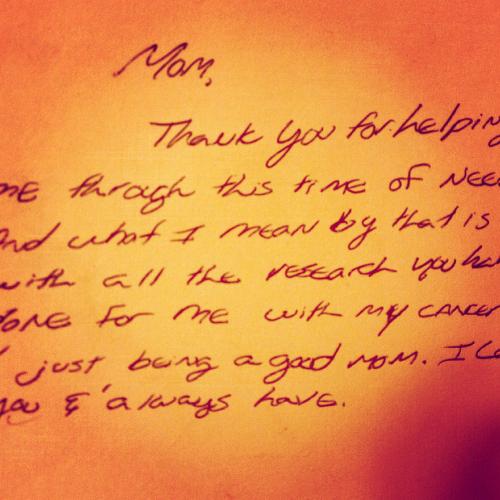 Mom,
Thank you for helping
me through this time of
And what I mean by that is
with all the research you
done for me with my cancer
just being a good mom. I
you & always have.